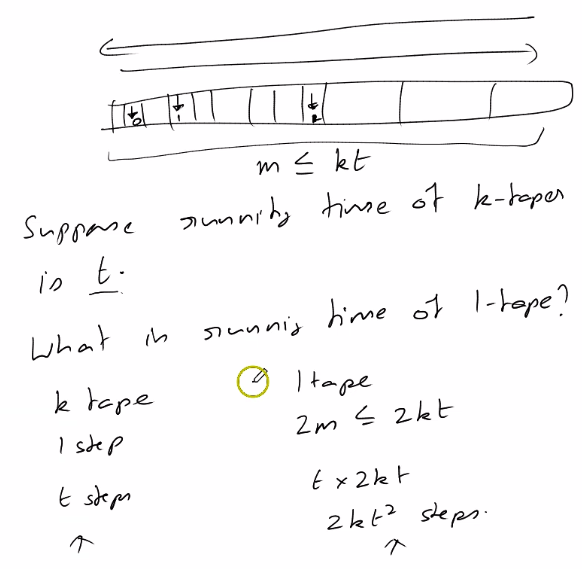 m ≤ kt
Suppose running time of k-tapes
is t.
What is running time of 1-tape?
k tape 1 tape
1 step 2m ≤ 2kt
t steps t x 2kt
2kt² steps.